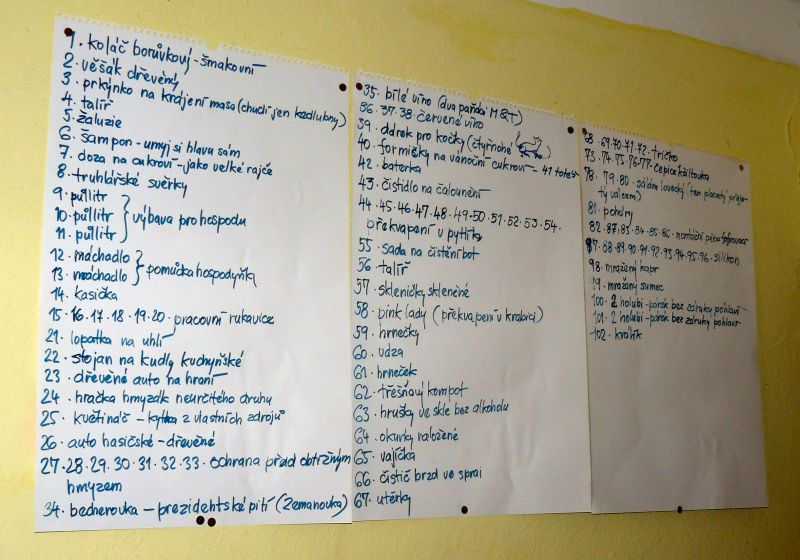 1. koláč borůvkový - šmakovní
2. věšák dřevěný
3. prkýnko na krájení masa (chudí jen kedlubny)
4. talíř
5. žaluzie
6. šampon - umyj si hlavu sám
7. doza na cukroví - jako velké rajče
8. truhlářské svěrky
9. půllitr
10. půllitr } výbava pro hospodu
11. půllitr
12. máchadlo
13. máchadlo } pomůcka hospodyňky
14. kasička
15. 16. 17. 18. 19. 20. pracovní rukavice
21. lopatka na uhlí
22. stojan na kudly kuchyňské
23. dřevěné auto na hraní
24. hračka hmyzák neurčitého druhu
25. květináč - kytka z vlastních zdrojů
26. auto hasičské - dřevěné
27. 28. 29. 30. 31. 32. 33. ochrana před obtížným
hmyzem
34. becherovka - prezidentské pití (Zemanovka)
35. bílé víno (dva pařáci M&T)
36. 37. 38. červené víno
39. dárek pro kočky (čtyřnohé)
40. formičky na vánoční cukroví - 41 totéž
42. baterka
43. čistidlo na čalounění
44. 45. 46. 47. 48. 49. 50. 51. 52. 53. 54.
překvapení v pytlíku
55. sada na čištění bot
56. talíř
57. skleničky skleněné
58. pink lady (překvapení v krabici)
59. hrnečky
60. udza
61. hrneček
62. třešňový kompot
63. hrušky ve skle bez alkoholu
64. okurky naložené
65. vajíčka
66. čistič brzd ve spreji
67. utěrky
68. 69. 70. 71. 72. tričko
73. 74. 75. 76. 77. čepice kšiltovka
78. 79. 80. salám lovecký (ten placatý přejetý
válcem)
81. poháry
82. 83. 84. 85. 86. montážní pěna
87. 88. 89. 90. 91. 92. 93. 94. 95. 96. silikon
98. mražený kapr
99. mražený sumec
100. 2 holubi - párek bez záruky pohlaví
101. 2 holubi - párek bez záruky pohlaví
102. králík